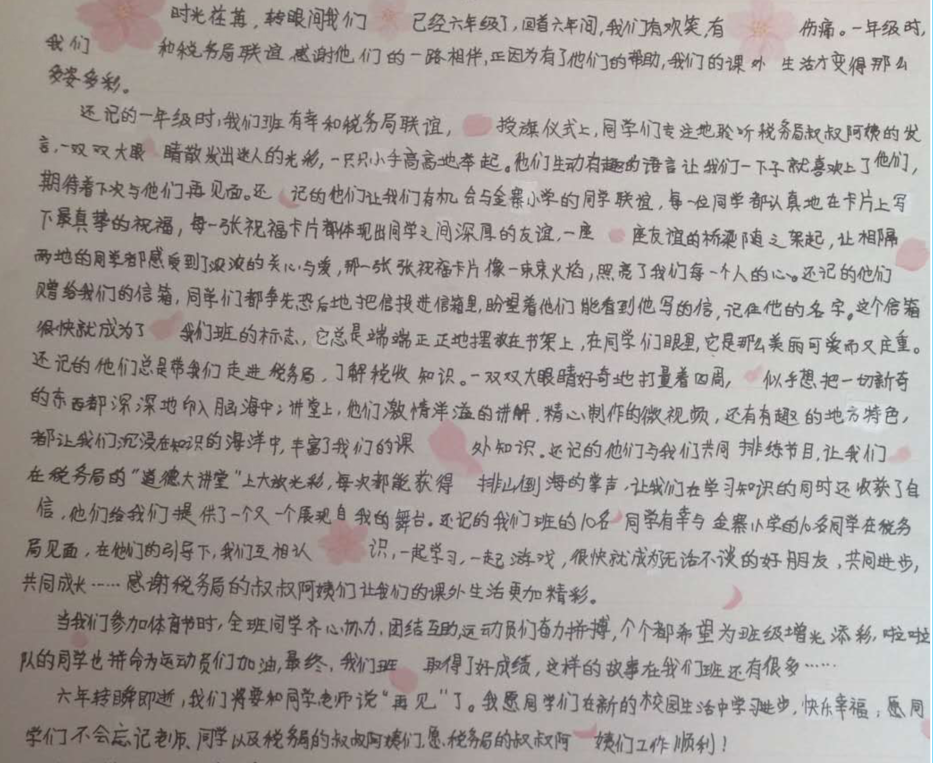 时光荏苒，转眼间我们已经六年级了，回首六年间，我们有欢笑，有伤痛。一年级时，
我们和税务局联谊，感谢他们的一路相伴，正因为有了他们的帮助，我们的课外生活才变得那么
多姿多彩。
还记的一年级时，我们班有幸和税务局联谊，授旗仪式上，同学们专注地聆听税务局叔叔阿姨的发
言，一双双大眼睛散发出迷人的光彩，一只只小手高高地举起。他们生动有趣的语言让我们一下子就喜欢上了他们，
期待着下次与他们再见面。还记的他们让我们有机会与金寨小学的同学联谊，每一位同学都认真地在卡片上写
下最真挚的祝福，每一张祝福卡片都体现出同学之间深厚的友谊，一座座友谊的桥梁随之架起，让相隔
两地的同学都感受到了浓浓的关心与爱，那一张张祝福卡片像一束束火焰，照亮了我们每一个人的心。还记的他们
赠给我们的信箱，同学们都争先恐后地把信投进信箱里，盼望着他们能看到他写的信，记住他的名字。这个信箱
很快就成为了我们班的标志，它总是端端正正地摆放在书架上，在同学们眼里，它是那么美丽可爱而又庄重。
还记的他们总是带我们走进税务局，了解税收知识。一双双大眼睛好奇地打量着四周，似乎想把一切新奇
的东西都深深地印入脑海中；讲堂上，他们激情洋溢的讲解，精心制作的微视频，还有有趣的地方特色，
都让我们沉浸在知识的海洋中，丰富了我们的课外知识。还记的他们与我们共同排练节目，让我们
在税务局的“道德大讲堂”上大放光彩，每次都能获得排山倒海的掌声，让我们在学习知识的同时还收获了自
信，他们给我们提供了一个又一个展现自我的舞台。还记的我们班的10名同学有幸与金寨小学的10名同学在税务
局见面，在他们的引导下，我们互相认识，一起学习，一起游戏，很快就成为无话不谈的好朋友，共同进步，
共同成长……感谢税务局的叔叔阿姨们让我们的课外生活更加精彩。
当我们参加体育节时，全班同学齐心协力，团结互助，运动员们奋力拼搏，个个都希望为班级增光添彩，啦啦
队的同学也拼命为运动员们加油，最终，我们班取得了好成绩，这样的故事在我们班还有很多……
六年转瞬即逝，我们将要和同学老师说“再见”了。我愿同学们在新的校园生活中学习进步，快乐幸福；愿同
学们不会忘记老师、同学以及税务局的叔叔阿姨们，愿税务局的叔叔阿姨们工作顺利！